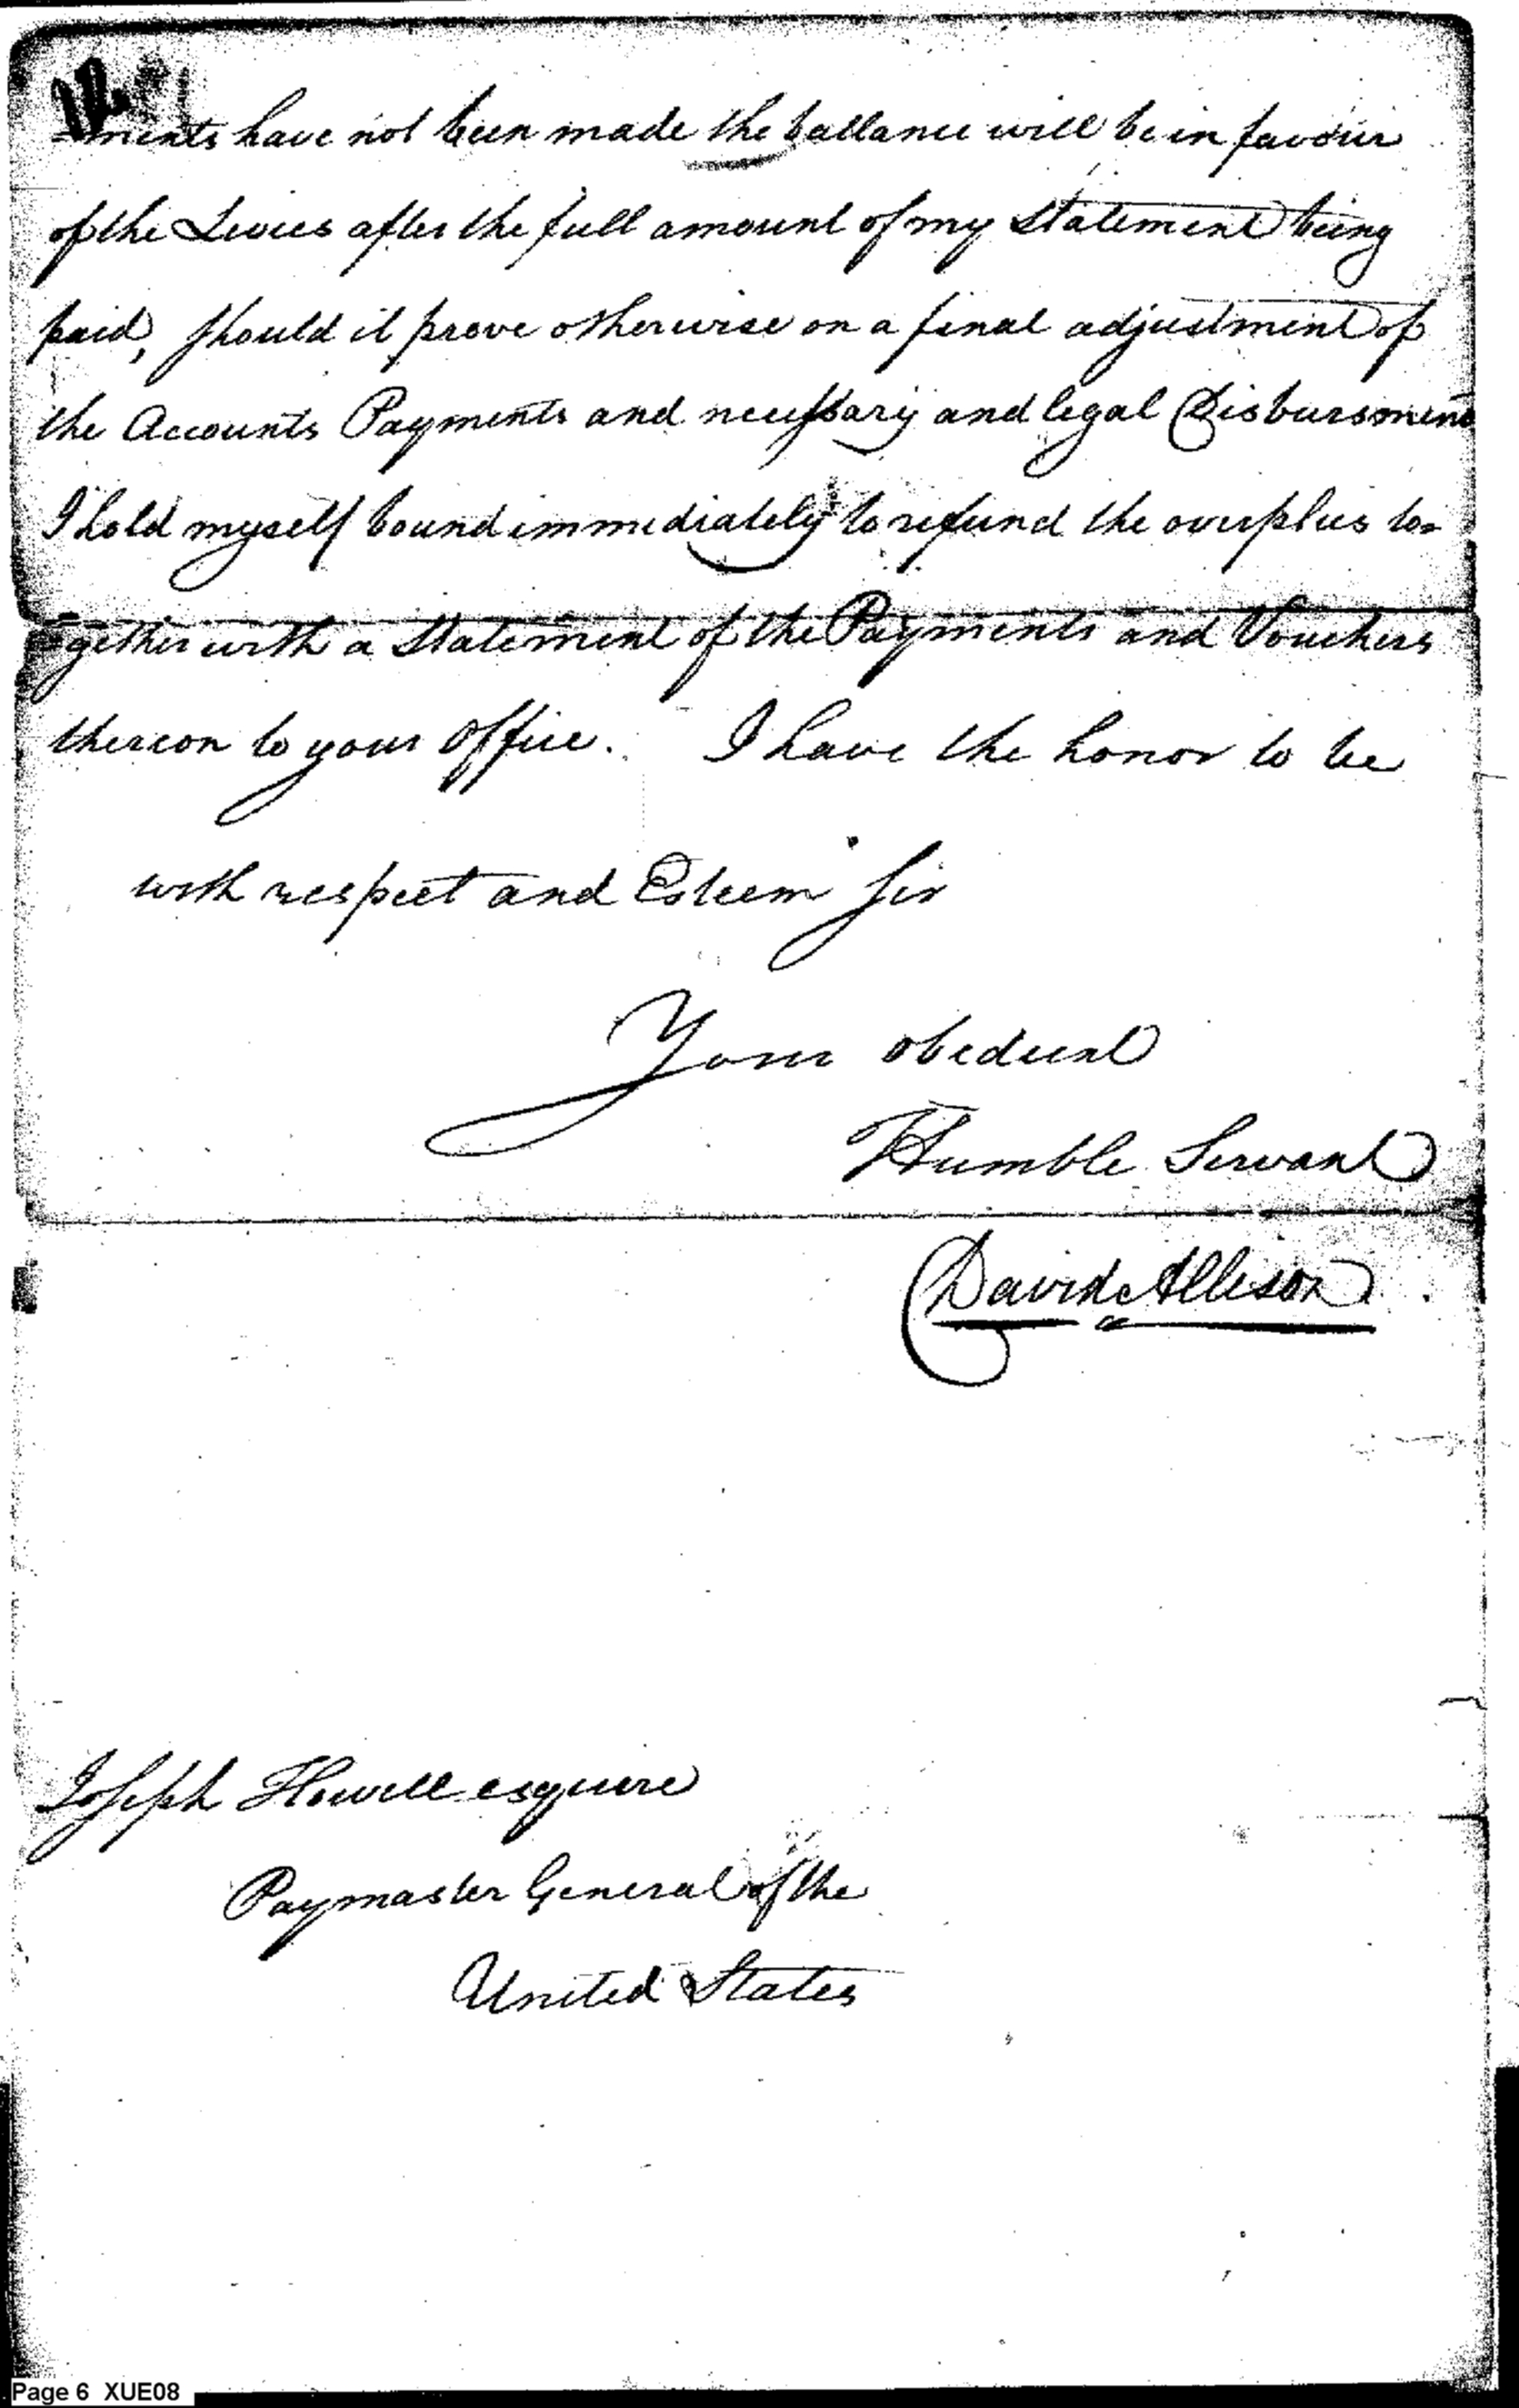 12
-ments have not been made the ballance will be in favour
of the Levies after the full amount of my Statement being
paid, should it prove otherwise on a final adjustment of
the Accounts Payments and necessary and legal Disbursments
I hold myself bound immediately to refund the overplus to=
=gether with a Statement of the Payments and Vouchers
thereon to your Office. I have the honor to be
with respect and Esteem Sir
Your obedient
Humble Servant
David Allison
Joseph Howell esquire
Paymaster General of the
United States
Page 6 XUE08